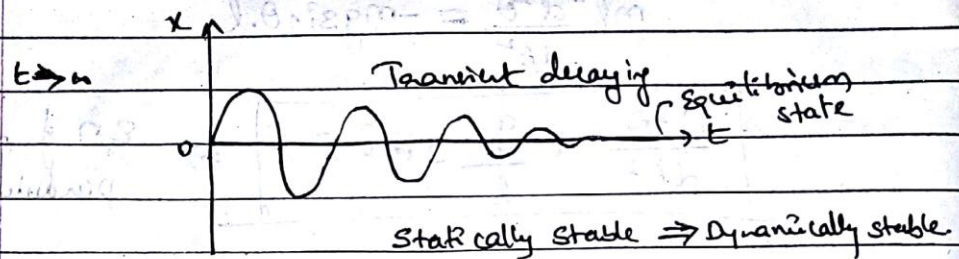 x
t→∞
Transient decaying
Equilibrium
state
0
t
Statically stable ⇒ Dynamically stable.